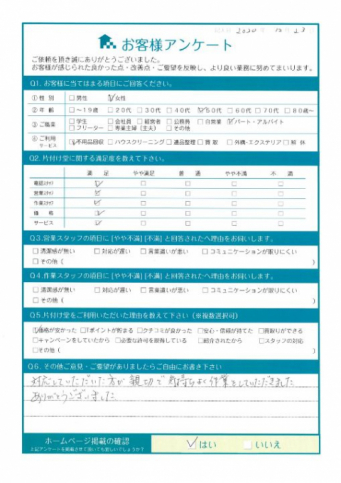 2020 12 23
お客様アンケート
ご依頼を頂き誠にありがとうございました。
お客様が感じられた良かった点・改善点・ご要望を反映し、より良い業務に努めてまいります。
Q1. お客様に当てはまる項目にご回答ください。
①性 別 □男性 ☑女性
②年 齢 □~19歳 □20代 □30代 □40代 ☑50代 □60代 □70代 □80歳~
③ご職業 □学生 □会社員 □経営者 □公務員 □自営業 ☑パート・アルバイト
□フリーター □専業主婦(主夫) □その他
④ご利用サービス ☑不用品回収 □ハウスクリーニング □遺品整理 □買取 □外構・エクステリア □解体
Q2. 片付け堂に関する満足度を教えて下さい。
満足 やや満足 普通 やや不満 不満
電話スタッフ ☑ □ □ □ □
営業スタッフ ☑ □ □ □ □
作業スタッフ ☑ □ □ □ □
価格 ☑ □ □ □ □
サービス ☑ □ □ □ □
Q3. 営業スタッフの項目に[やや不満][不満]と回答された方へ理由をお伺いします。
□清潔感が無い □対応が遅い □言葉遣いが悪い □コミュニケーションが取りにくい
□その他( )
Q4. 作業スタッフの項目に[やや不満][不満]と回答された方へ理由をお伺いします。
□清潔感が無い □対応が遅い □言葉遣いが悪い □コミュニケーションが取りにくい
□その他( )
Q5. 片付け堂をご利用いただいた理由を教えて下さい(※複数選択可)
☑価格が安かった □Tポイントが貯まる □クチコミが良かった □安心・信頼が持てた □買取りができる
□キャンペーンをしていたから □必要な許可を取得している □紹介されたから □スタッフの対応
□その他( )
Q6. その他ご意見・ご要望がありましたらご自由にお書き下さい
対応していただいた方が親切で気持ちよく作業をしていただきました
ありがとうございました
ホームページ掲載の確認
☑はい □いいえ